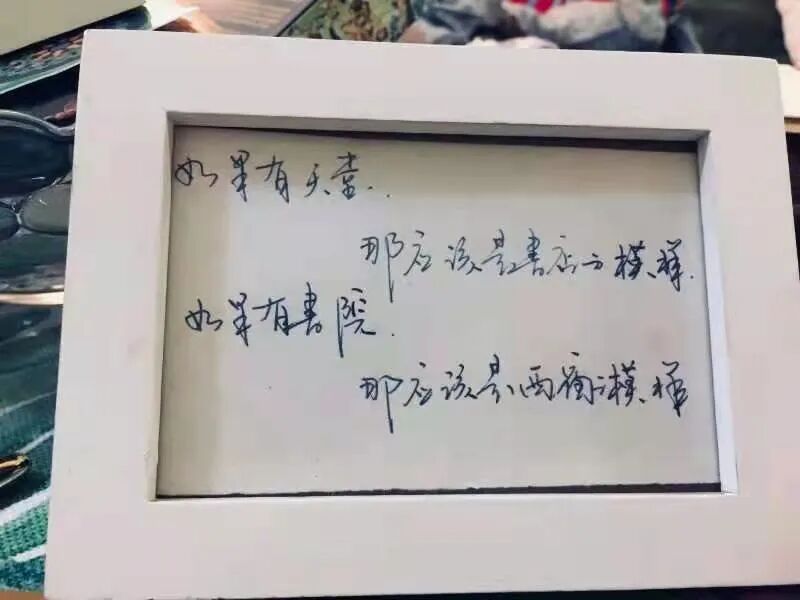 如果有天堂.
那应该是書店的模样.
如果有書院.
那应该是西的模样